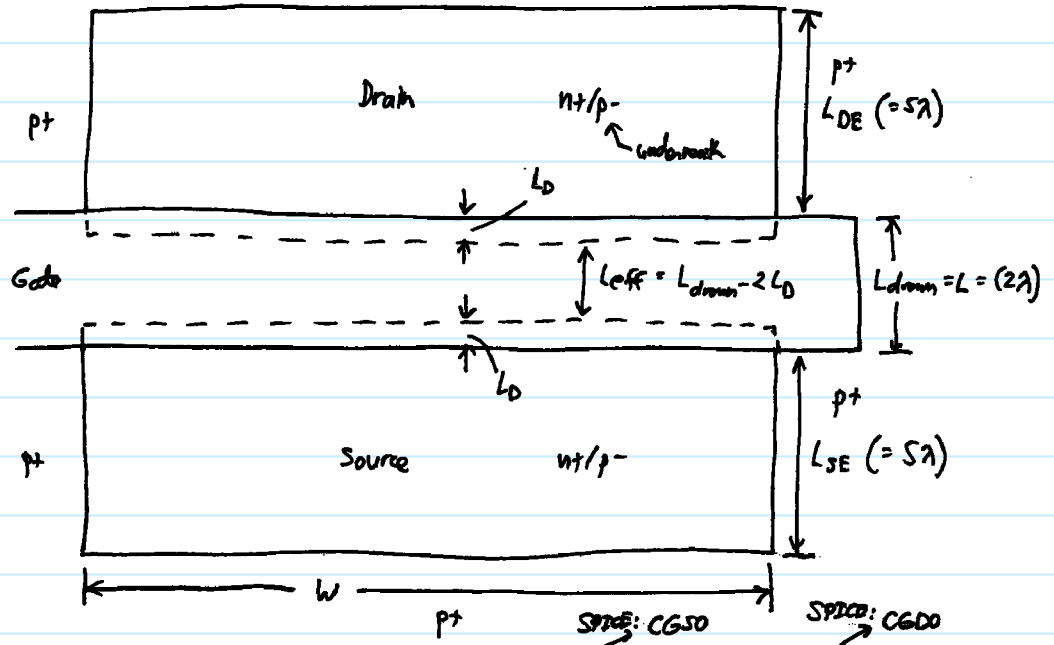 p+
Drain
n+/p-
undermask
p+
L_DE (=5λ)
L_D
Gate
Leff = L_drawn - 2L_D
L_drawn = L = (2λ)
L_D
p+
Source
n+/p-
p+
L_SE (=5λ)
W
p+
SPICE: CGSO
SPICE: CGDO